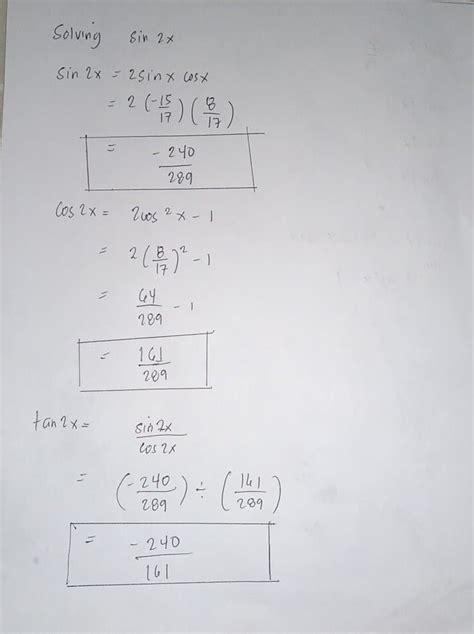 Solving sin 2x
sin 2x = 2 sin x cos x
= 2 (-15/17) (8/17)
= -240/289
cos 2x = 2cos² x - 1
= 2 (8/17)² - 1
= 64/289 - 1
= 161/289
tan 2x = sin 2x/cos 2x
= (-240/289) ÷ (161/289)
= -240/161